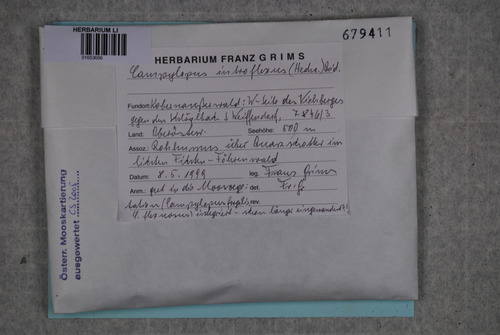 HERBARIUM LI
679411
HERBARIUM FRANZ GRIMS
Campylopus introflexus (Hedw.) Brid.
Fundort: Kobernaußerwald: W-Seite des
gegen den S 7846/3
Land: Oberösterr. Seehöhe: 500 m
Assoz.: Rohhumus über Quarzschotter im
lichten Fichten-Föhrenwald
Datum: 8.5.1999 leg. Franz Grims
Anm.: gut in die Moosvege- det. Fr. G.
tation (Campylopus rev.
flexuosus) integriert - schon länger eingewandert?!
Österr. Mooskartierung
ausgewertet